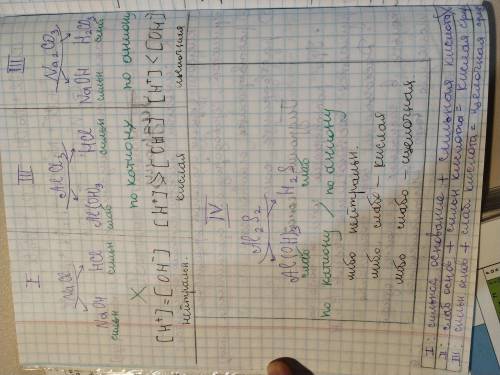 I
NaCl
NaOH HCl
сильн сильн
X
[H⁺] = [OH⁻]
нейтральн.
III
AlCl3
Al(OH)3 HCl
слаб сильн
по катиону
[H⁺] > [OH⁻]
кислая
III
Na2CO3
NaOH H2CO3
сильн слаб
по аниону
[H⁺] < [OH⁻]
щелочная
IV
Al2S3
Al(OH)3 H2S
слаб слаб
по катиону / по аниону
либо нейтральн.
либо слабо - кислая
либо слабо - щелочная
I: сильное основание + сильная кислота X
II: слаб основ + сильн кислота = кислая сре
III: сильн + слаб. кислота = щелочная